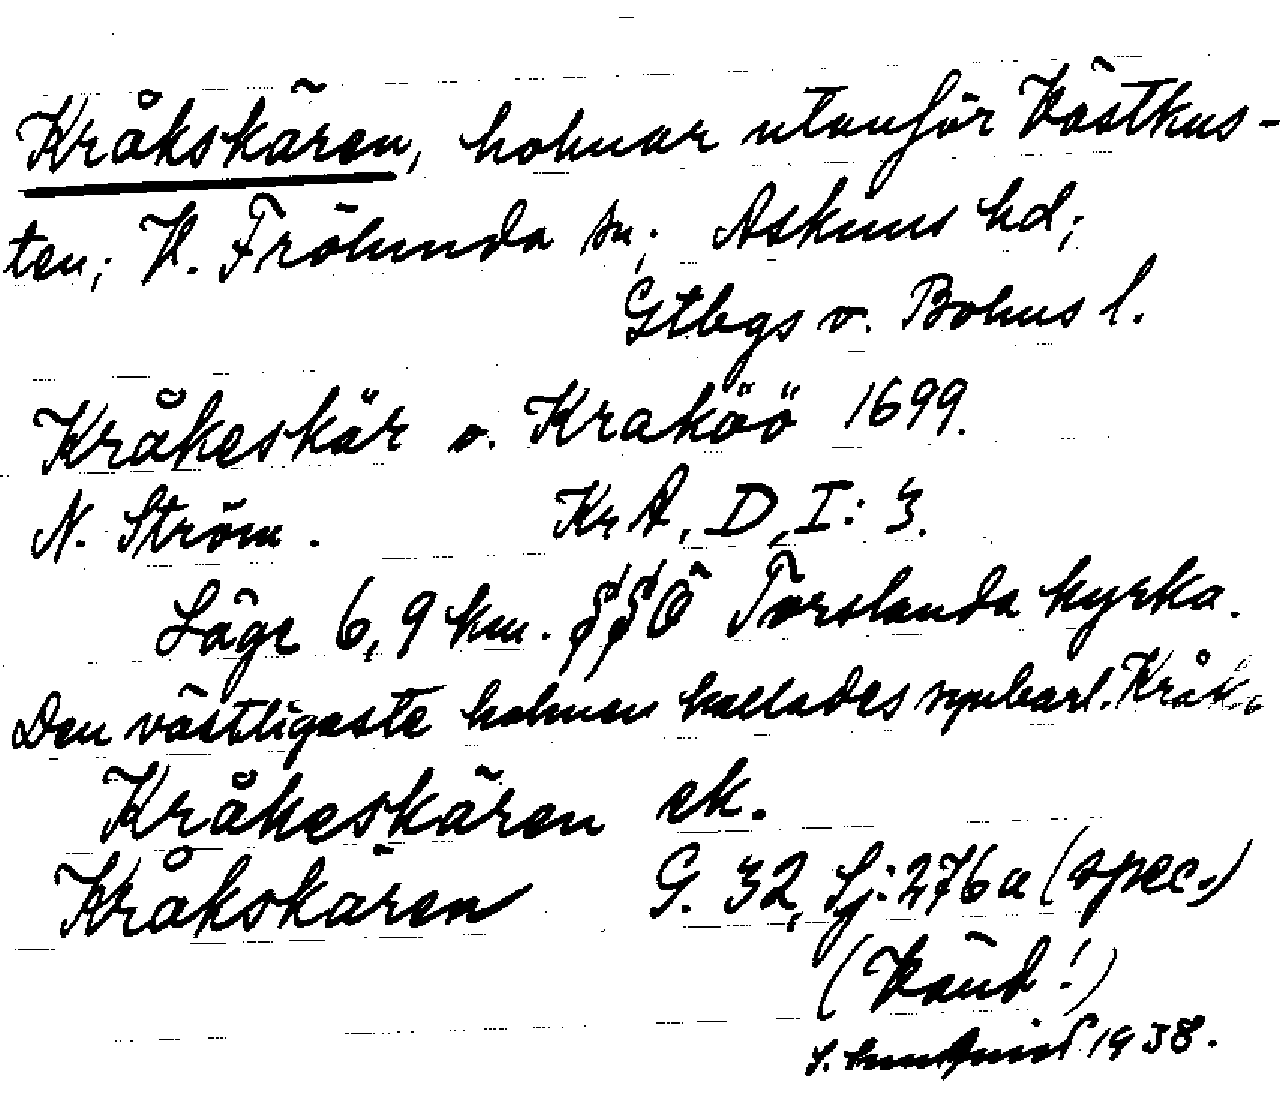 Kråkskären, holmar utanför Västkus-
ten; V. Frölunda sn; Askims hd;
Gtbgs o. Bohus l.
Kråkeskär o. Kraköö 1699.
N. Ström. KrA, D, I: 3.
Läge 6,9 km. SSÖ Torslanda kyrka.
Den västligaste holmen kallades synbarl. Kråk
Kråkeskären ek.
Kråkskären G. 32, Sj: 276a (spec.)
(Vänd!)
1938.